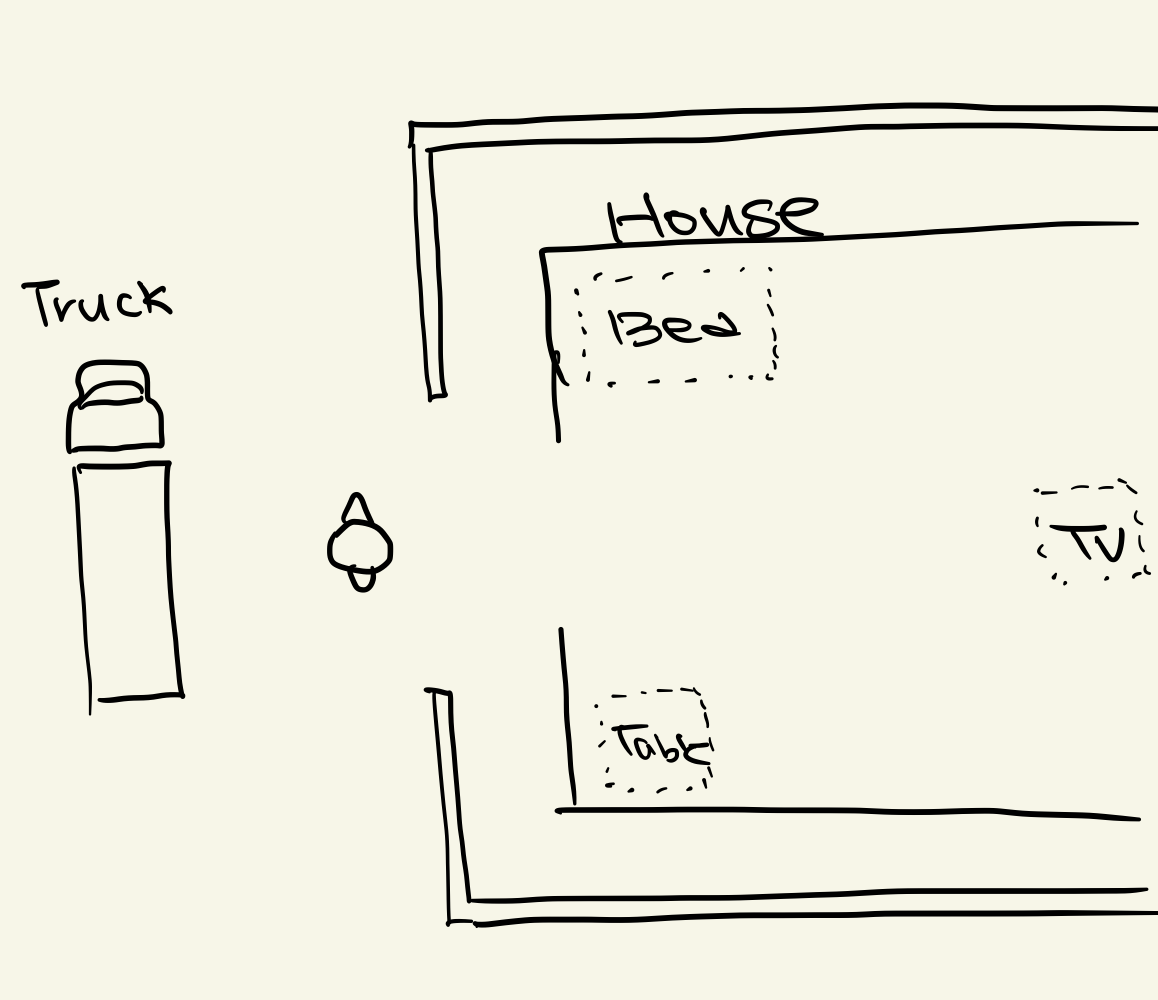 House
Truck
Bed
TV
Table